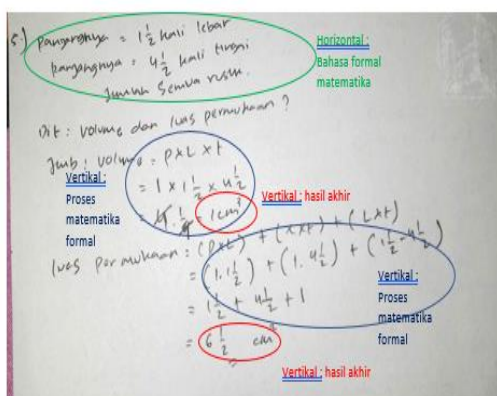 5.) Panjangnya = 1 1/2 kali lebar
Panjangnya = 4 1/2 kali tinggi
Jumlah semua rusuk.
Horizontal :
Bahasa formal
matematika
Dit : volume dan luas permukaan ?
Jwb : volume = P x L x t
= 1 x 1 1/2 x 4 1/2
= 1 cm³
Vertikal :
Proses
matematika
formal
Vertikal : hasil akhir
luas permukaan : (PxL) + (Lxt)
= (1. 1 1/2) + (1. 4 1/2) + (1 1/2 - 4 1/2)
= 1 1/2 + 4 1/2 + 1
= 6 1/2 cm
Vertikal :
Proses
matematika
formal
Vertikal : hasil akhir